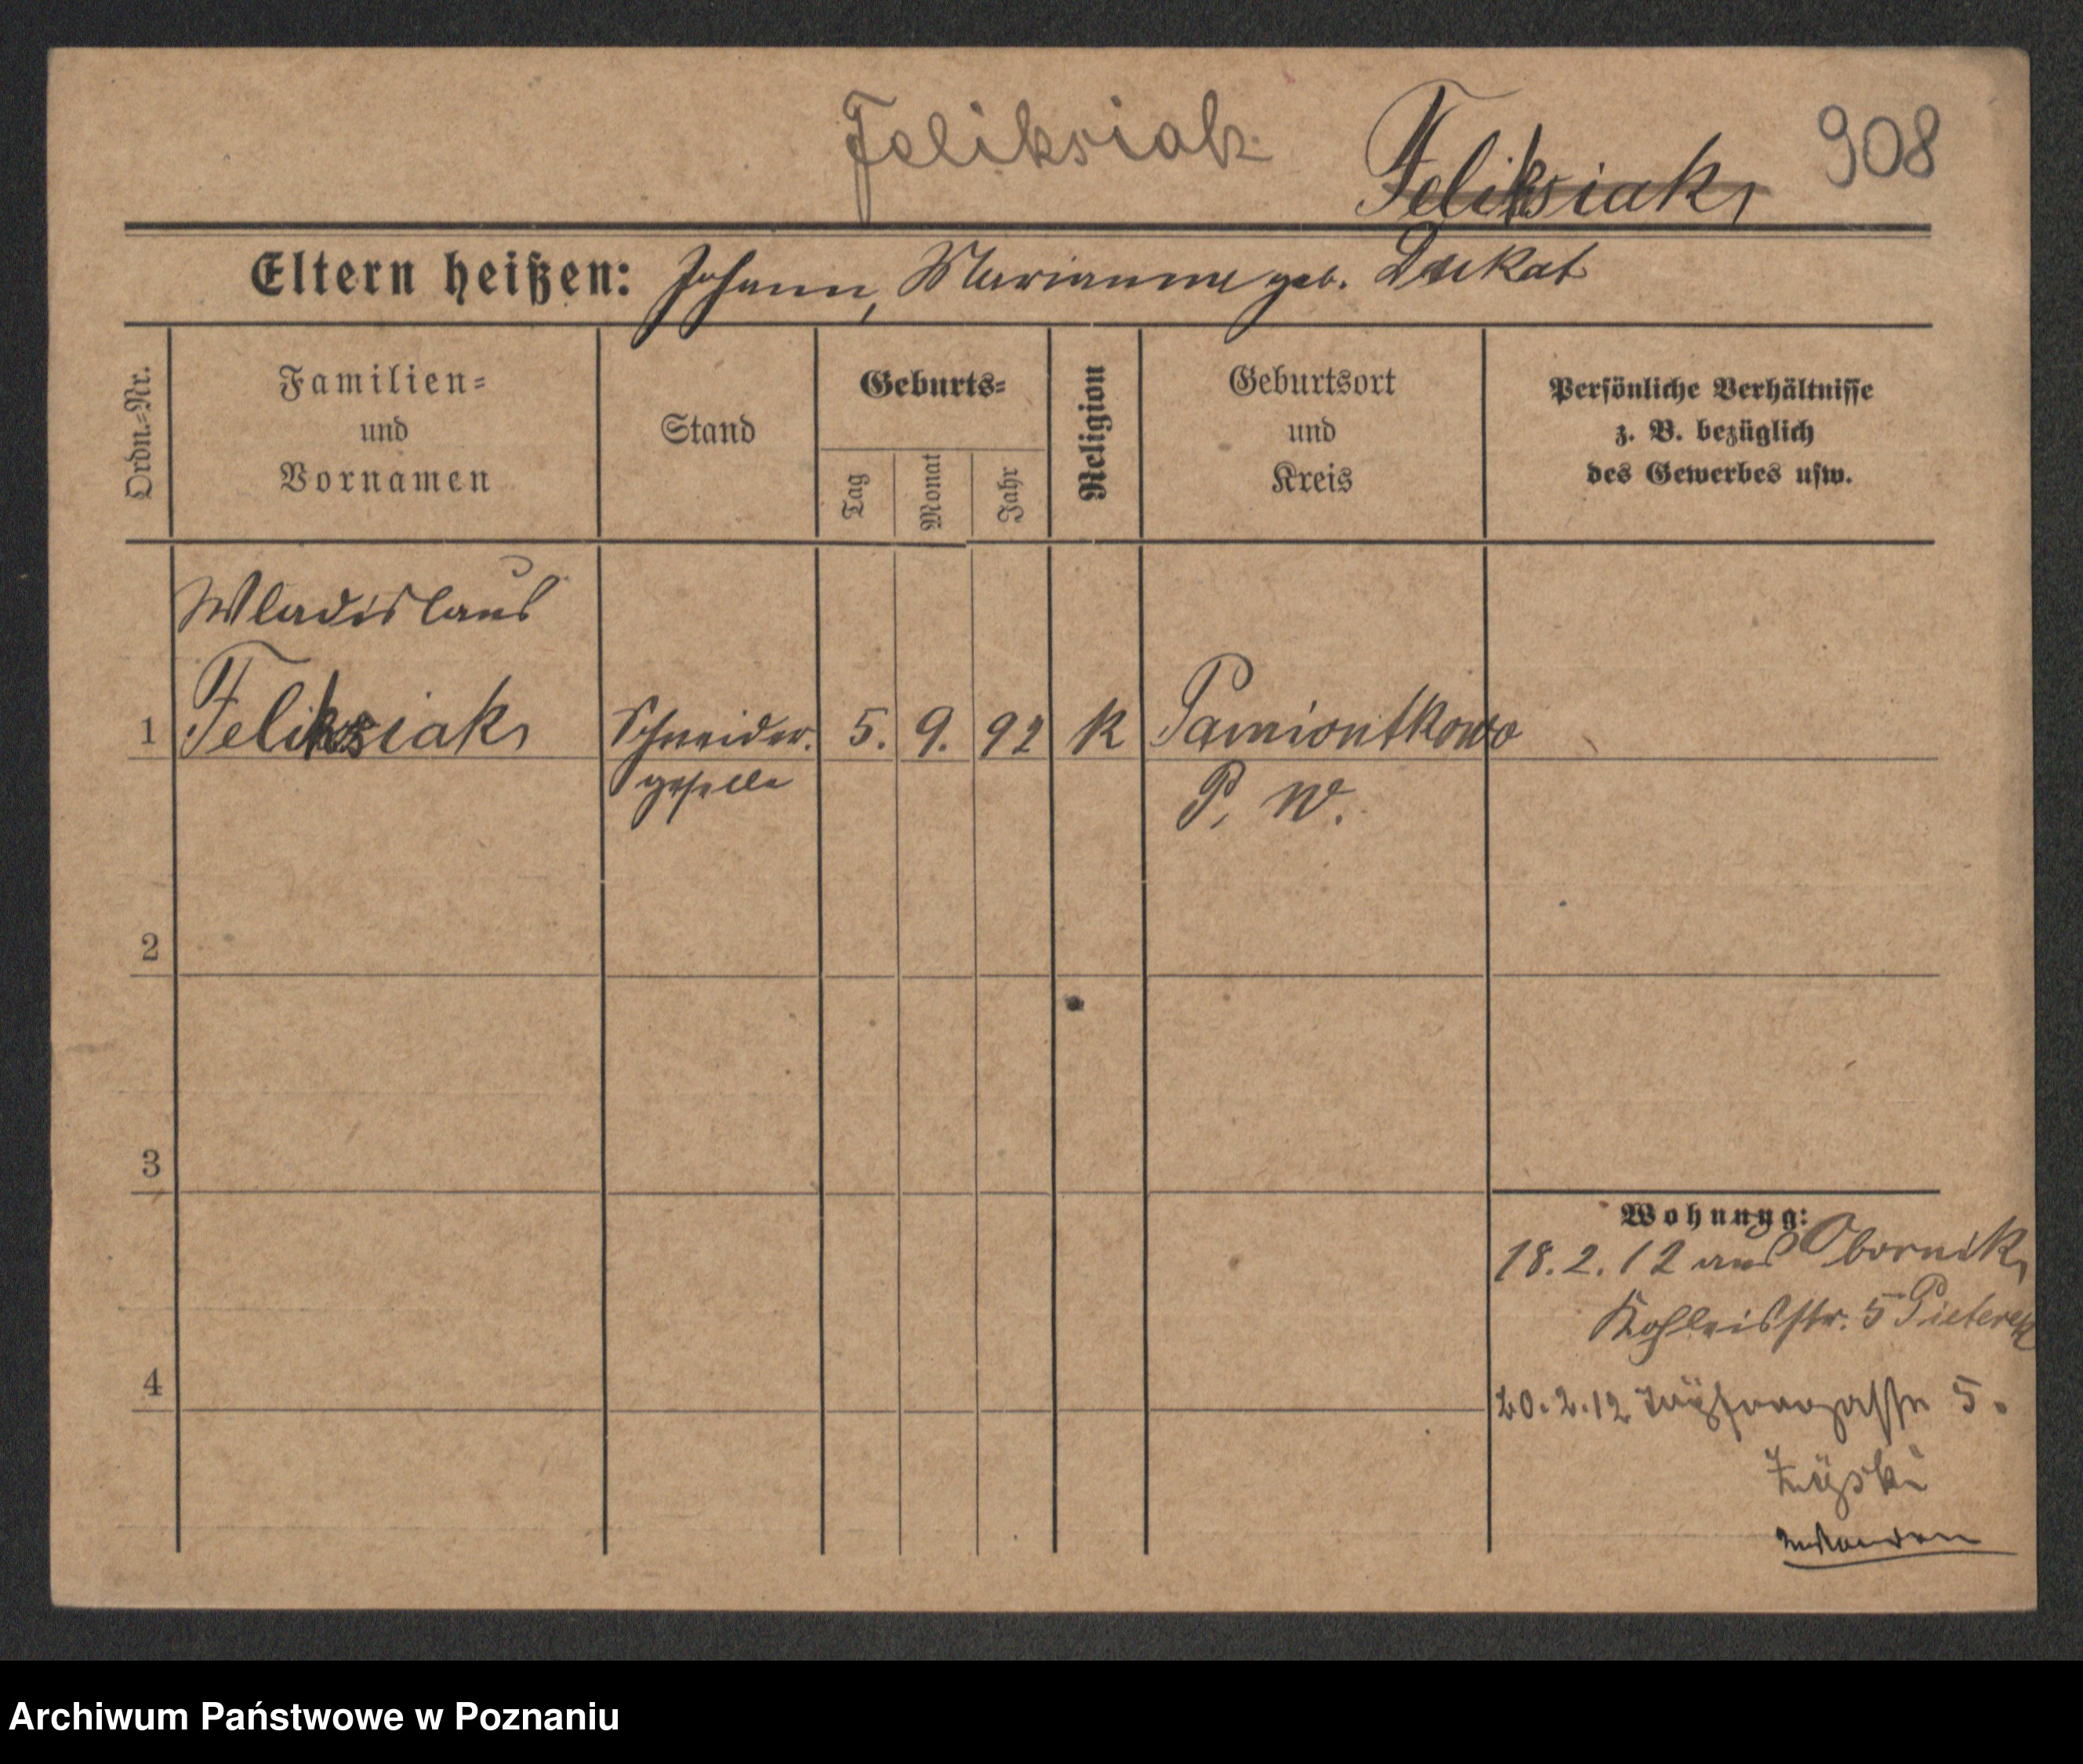 Feliksiak Feliksiak 908
Eltern heißen: Johann, Marianna geb. Dukat
Ordn.-Nr.
Familien-
und
Vornamen
Stand
Geburts-
Tag
Monat
Jahr
Religion
Geburtsort
und
Kreis
Persönliche Verhältnisse
z. B. bezüglich
des Gewerbes usw.
Wladislaus
1 Feliksiak Schneider. 5. 9. 92 K Pamiontkowo
geselle P. W.
2
3
Wohnung:
18.2.12 aus Obornik,
Kohleisstr. 5 Pieterek
4
20.2.12 5.
Archiwum Państwowe w Poznaniu